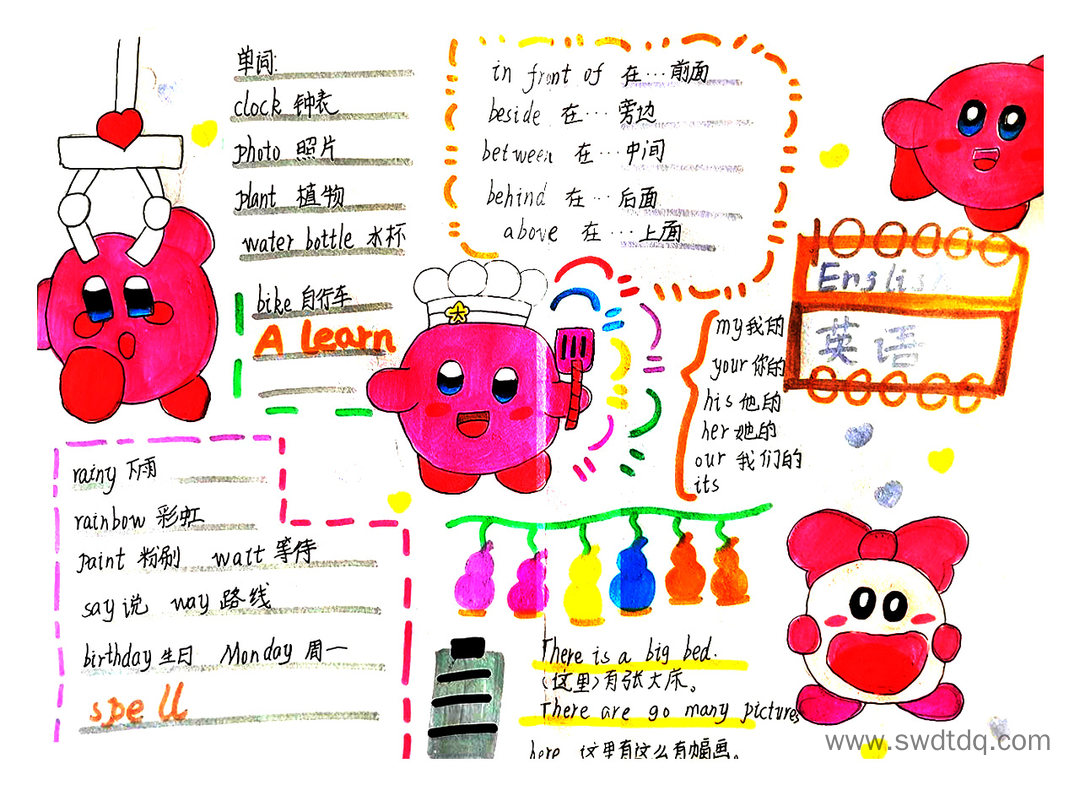 单词:
clock 钟表
photo 照片
plant 植物
water bottle 水杯
bike 自行车
A Learn
in front of 在…前面
beside 在…旁边
between 在…中间
behind 在…后面
above 在…上面
English
英语
my 我的
your 你的
his 他的
her 她的
our 我们的
its
rainy 下雨
rainbow 彩虹
paint 粉刷 watt 等待
say 说 way 路线
birthday 生日 Monday 周一
spell
There is a big bed.
(这里)有张大床。
There are go many pictures
here 这里有这么有幅画。
www.swdtdq.com